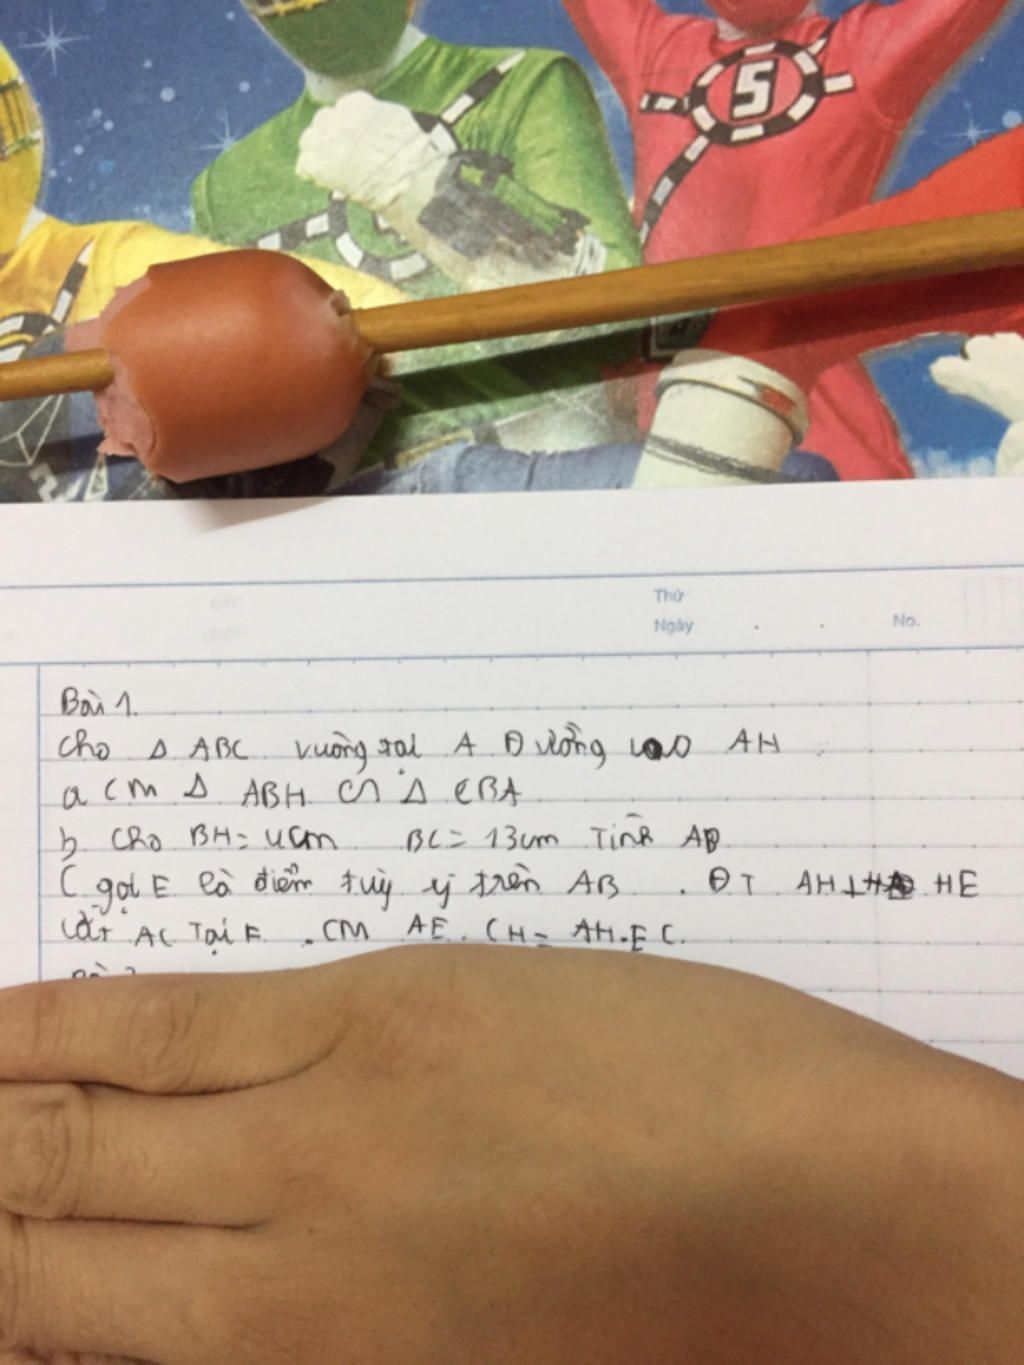 5
2
Thứ
Ngày . . No.
Bài 1.
Cho Δ ABC vuông tại A Đường cao AH
a CM Δ ABH ∽ Δ CBA
b, Cho BH = 4cm BC = 13cm Tính AB
C gọi E là điểm tuỳ ý trên AB . ĐT AH⊥ HE
cắt AC Tại F . CM AE. CH = AH.EC.